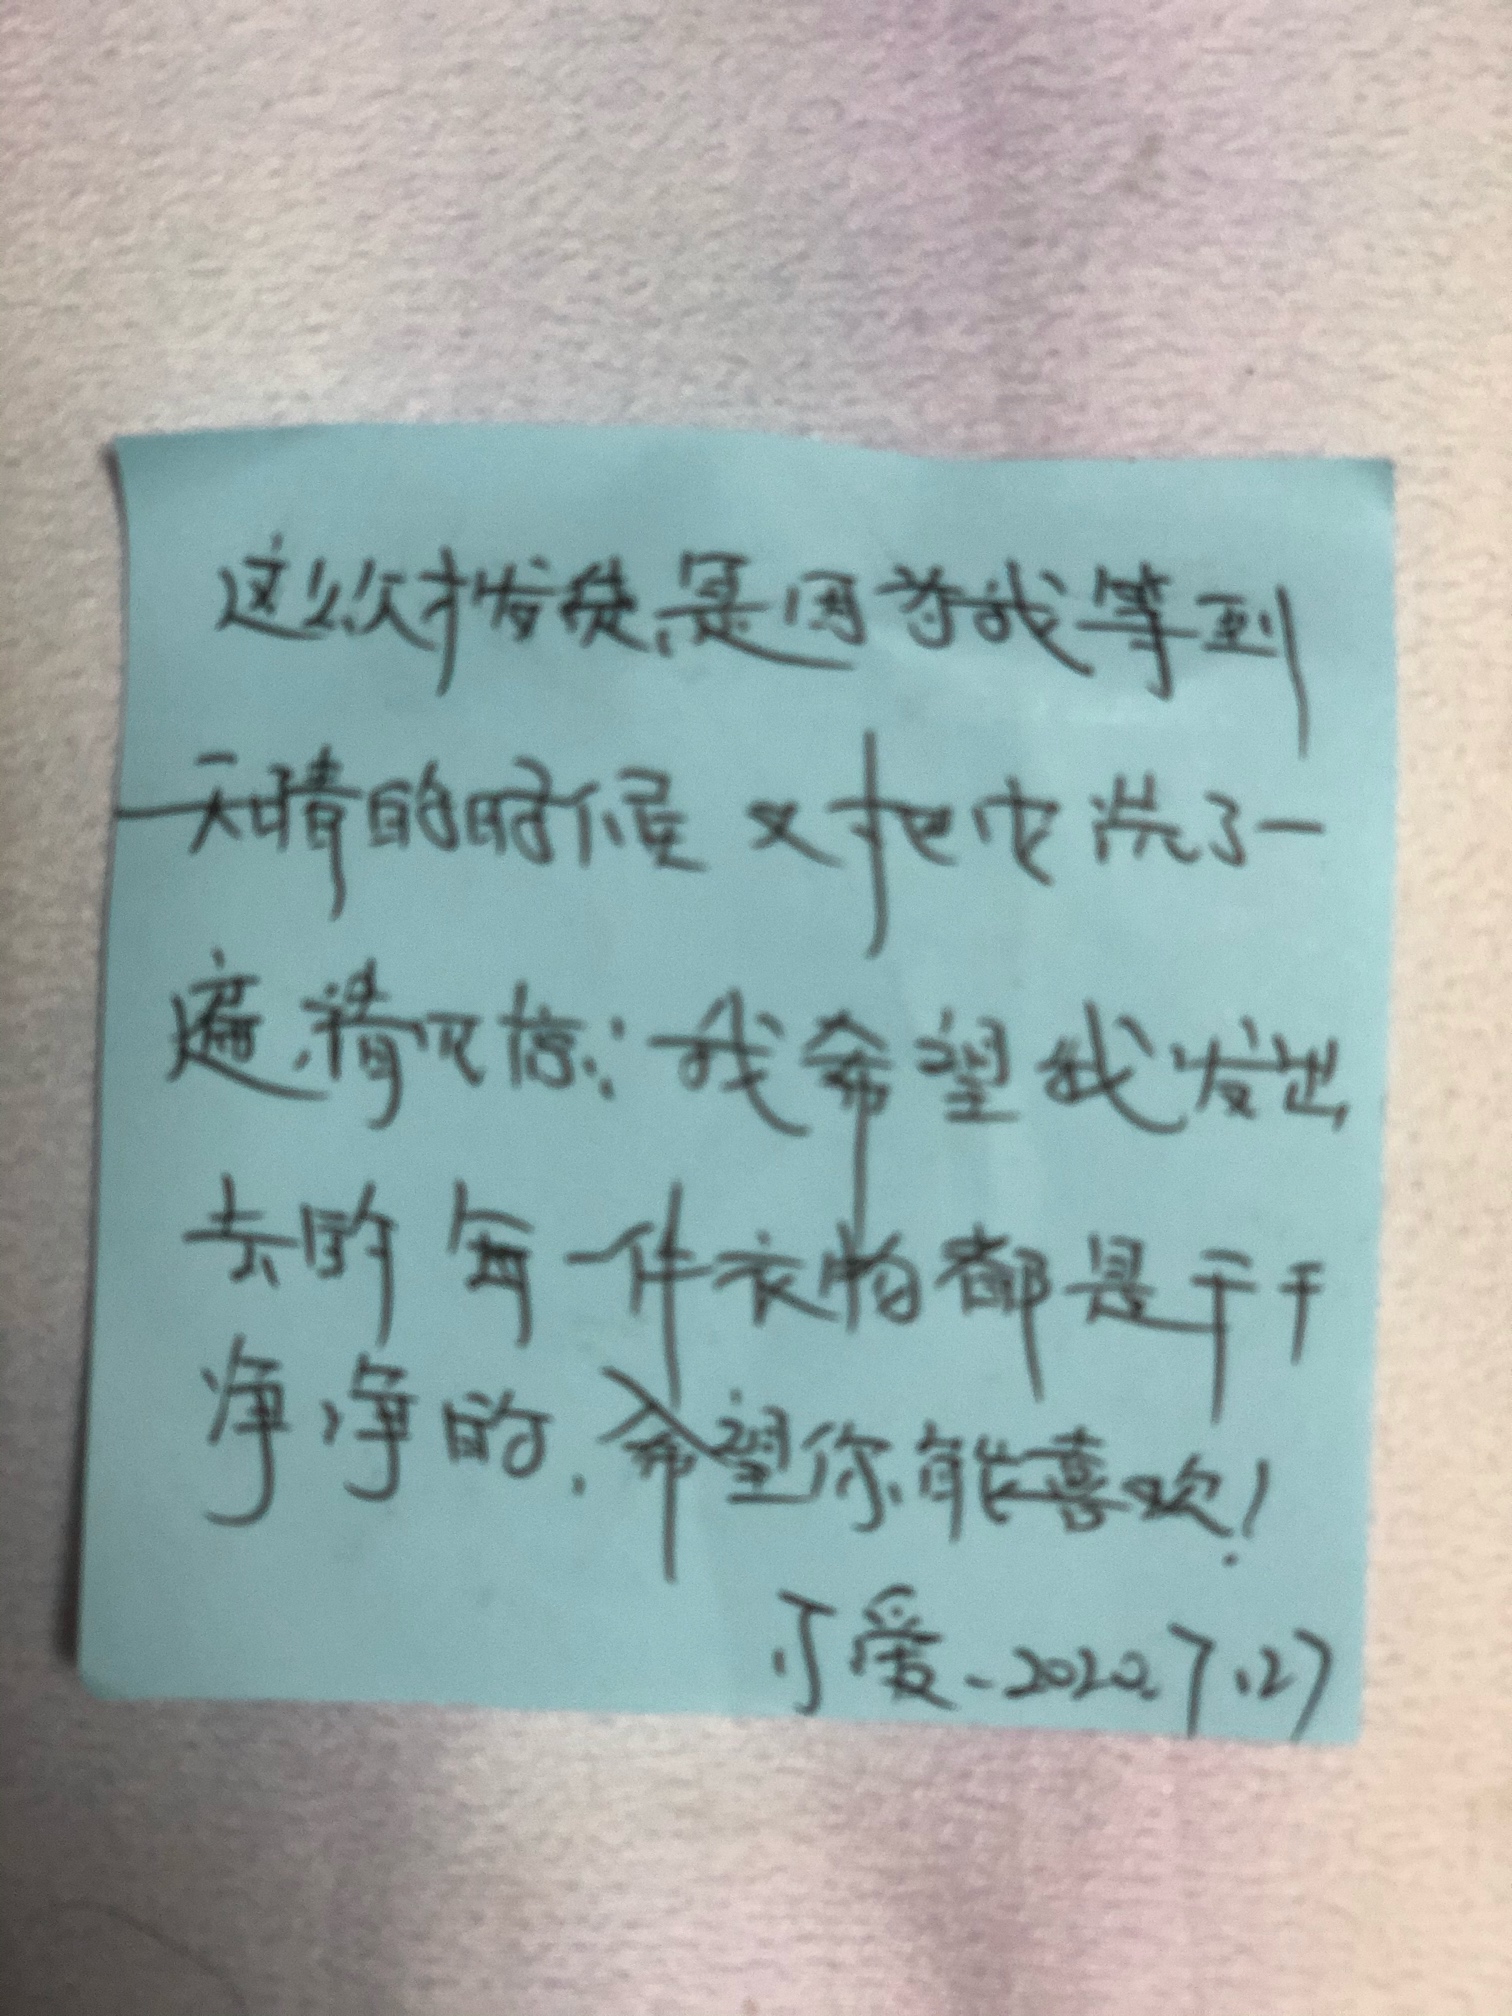 这次才发货是因为我等到
天晴的时候又把它洗了一
遍,请见谅;我希望我发出
去的每一件衣物都是干干
净净的,希望你能喜欢!
可爱-2020.7.27